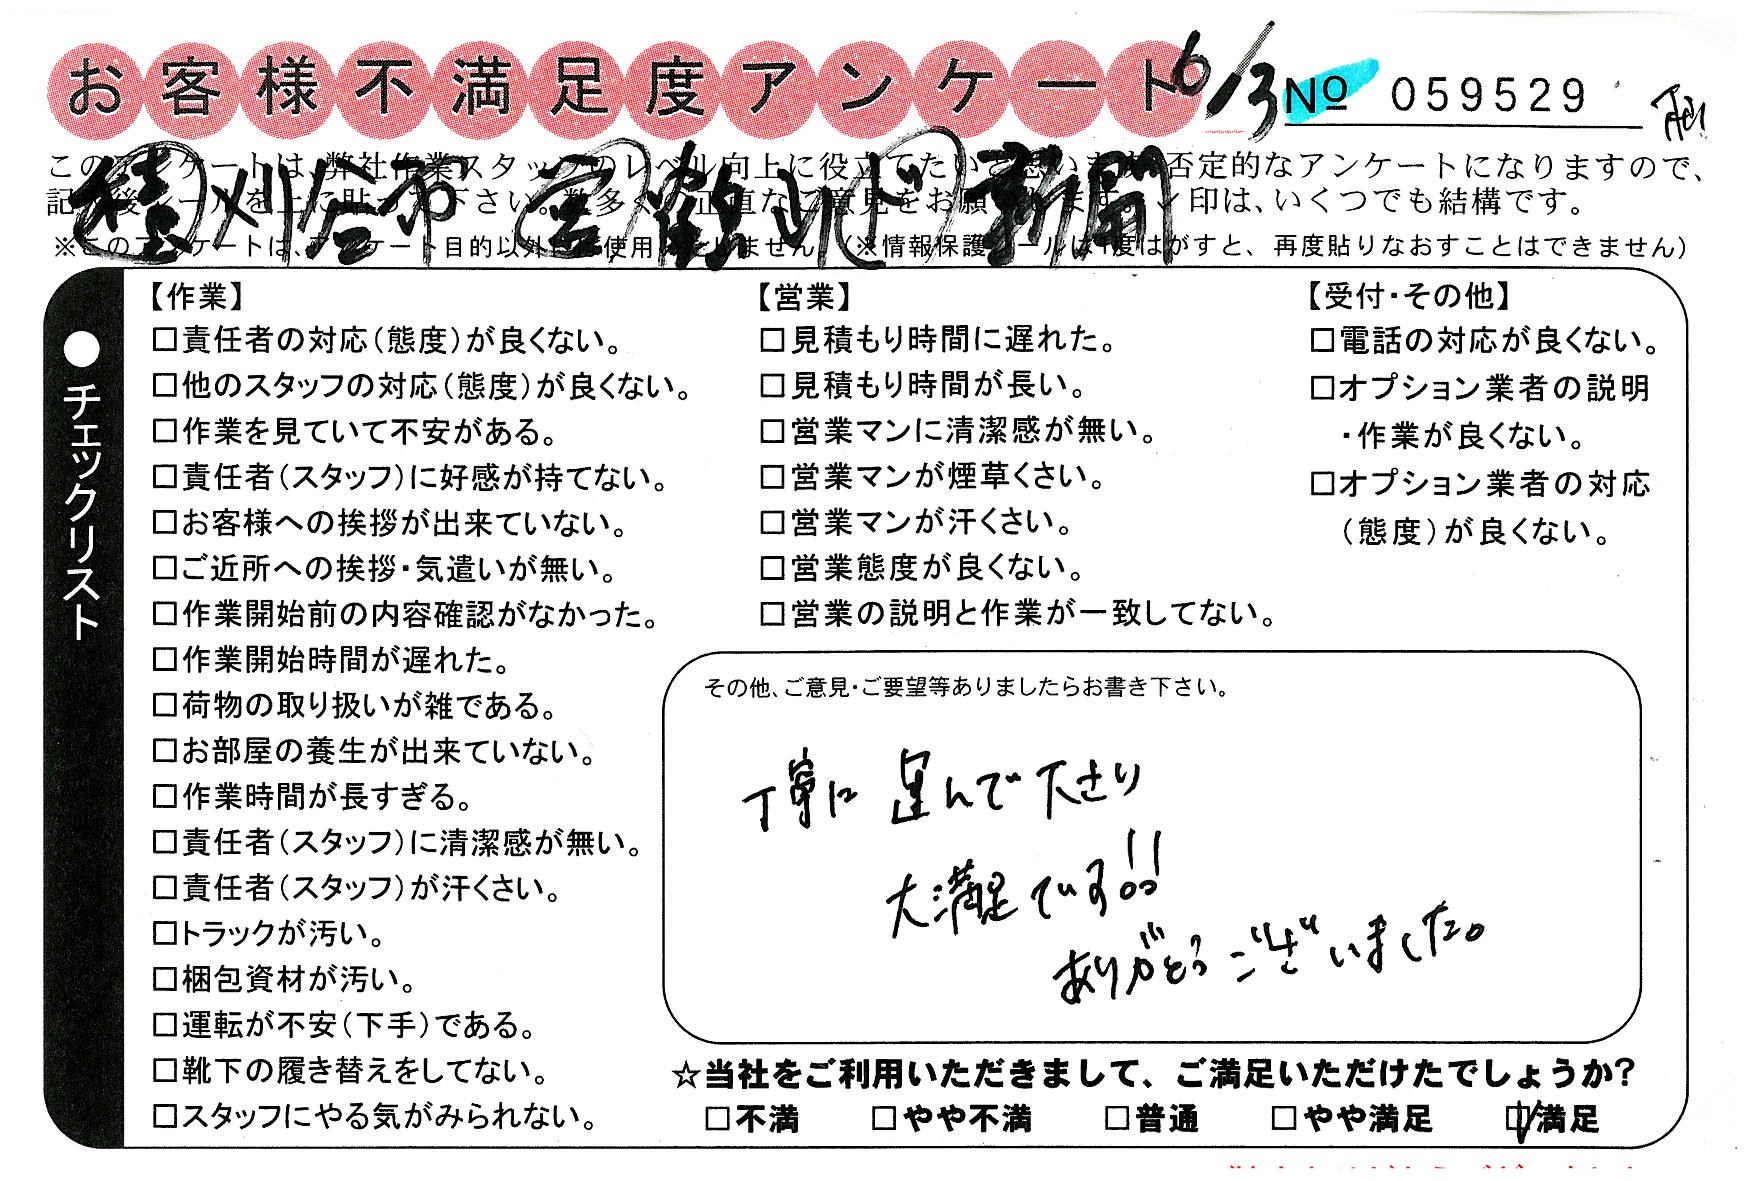 お客様不満足度アンケート 6/3 No 059529
このアンケートは、弊社作業スタッフのレベル向上に役立てたいと思います。否定的なアンケートになりますので、
記入後シールを上に貼って下さい。数多くの正直なご意見をお願いします。✓印は、いくつでも結構です。
刈谷市 新開
※このアンケートは、アンケート目的以外には使用いたしません。(※情報保護シールは1度はがすと、再度貼りなおすことはできません)
●チェックリスト
【作業】
□責任者の対応(態度)が良くない。
□他のスタッフの対応(態度)が良くない。
□作業を見ていて不安がある。
□責任者(スタッフ)に好感が持てない。
□お客様への挨拶が出来ていない。
□ご近所への挨拶・気遣いが無い。
□作業開始前の内容確認がなかった。
□作業開始時間が遅れた。
□荷物の取り扱いが雑である。
□お部屋の養生が出来ていない。
□作業時間が長すぎる。
□責任者(スタッフ)に清潔感が無い。
□責任者(スタッフ)が汗くさい。
□トラックが汚い。
□梱包資材が汚い。
□運転が不安(下手)である。
□靴下の履き替えをしてない。
□スタッフにやる気がみられない。
【営業】
□見積もり時間に遅れた。
□見積もり時間が長い。
□営業マンに清潔感が無い。
□営業マンが煙草くさい。
□営業マンが汗くさい。
□営業態度が良くない。
□営業の説明と作業が一致してない。
【受付・その他】
□電話の対応が良くない。
□オプション業者の説明
・作業が良くない。
□オプション業者の対応
(態度)が良くない。
その他、ご意見・ご要望等ありましたらお書き下さい。
丁寧に運んで下さり
大満足です!!
ありがとうございました。
☆当社をご利用いただきまして、ご満足いただけたでしょうか?
□不満 □やや不満 □普通 □やや満足 ☑満足